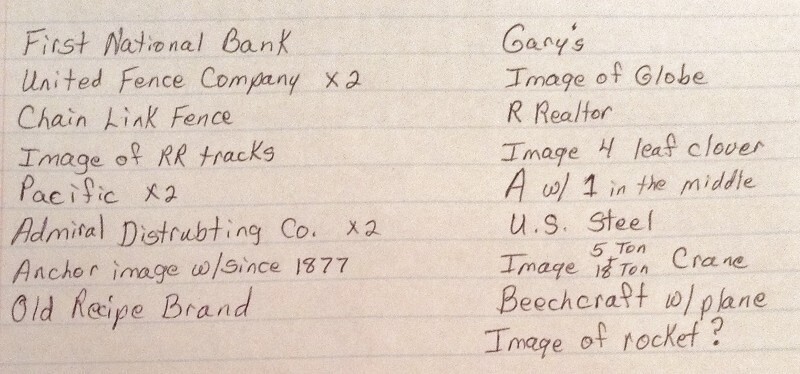 First National Bank
United Fence Company x2
Chain Link Fence
Image of RR tracks
Pacific x2
Admiral Distrubting Co. x2
Anchor image w/since 1877
Old Recipe Brand
Gary's
Image of Globe
R Realtor
Image 4 leaf clover
A w/ 1 in the middle
U.S. Steel
Image 5 Ton 18 Ton Crane
Beechcraft w/plane
Image of rocket?